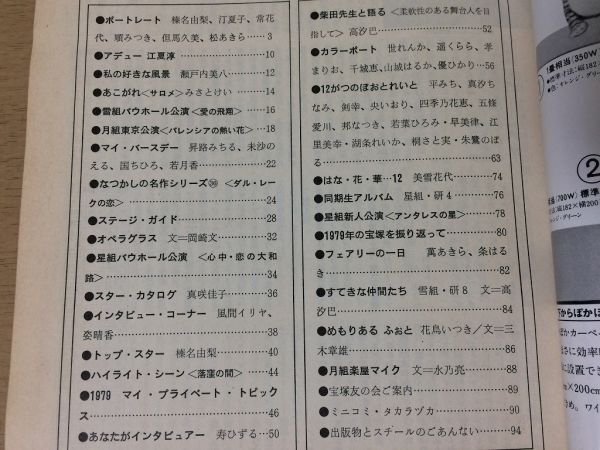 ●ポートレート 榛名由梨、汀夏子、常花
代、順みつき、但馬久美、松あきら……3
●アデュー 江夏淳……10
●私の好きな風景 瀬戸内美八……12
●あこがれ〈サロメ〉みさとけい……14
●雪組バウホール公演〈愛の飛翔〉……16
●月組東京公演〈バレンシアの熱い花〉……18
●マイ・バースデー 昇路みちる、未沙の
える、国ちひろ、若月香……22
●なつかしの名作シリーズ㉚〈ダル・レー
クの恋〉……24
●ステージ・ガイド……28
●オペラグラス 文＝岡崎文……32
●星組バウホール公演〈心中・恋の大和
路〉……34
●スター・カタログ 真咲佳子……36
●インタビュー・コーナー 風間イリヤ、
姿晴香……38
●トップ・スター 榛名由梨……40
●ハイライト・シーン〈落窪の間〉……44
●1979 マイ・プライベート・トピック
ス……46
●あなたがインタビュアー 寿ひずる…50
●柴田先生と語る〈柔軟性のある舞台人を目
指して〉高汐巴……52
●カラーポート 世れんか、遥くらら、孝
まりお、千城恵、山城はるか、優ひかり…56
●12がつのぽおとれいと 平みち、真汐ち
なみ、剣幸、央いおり、四季乃花恵、五條
愛川、邦なつき、若葉ひろみ・早美律、江
里美幸・湖条れいか、桐さと実・朱鷺のぼ
る……63
●はな・花・華…12 美雪花代……74
●同期生アルバム 星組・研4……76
●星組新人公演〈アンタレスの星〉……78
●1979年の宝塚を振り返って……80
●フェアリーの一日 萬あきら、条はる
き……82
●すてきな仲間たち 雪組・研8 文＝高
汐巴……84
●めもりある ふぉと 花鳥いつき／文＝三
木章雄……86
●月組楽屋マイク 文＝水乃亮……88
●宝塚友の会ご案内……89
●ミニコミ・タカラヅカ……90
●出版物とスチールのごあんない……94
1畳相当（350W
・標準寸法:縦182×横
・色:オレンジ・グリーン
②
（700W）標準
法:縦182×横200
レンジ・グリーン